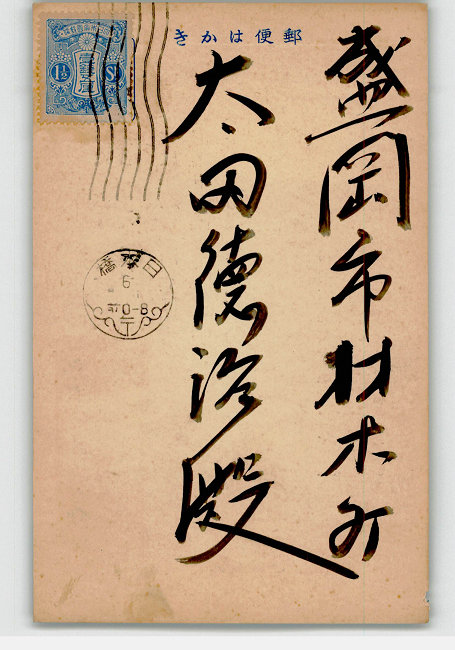 郵便はかき
盛岡市材木町
太田德治殿
1½ Sn
日本橋
6
0-8